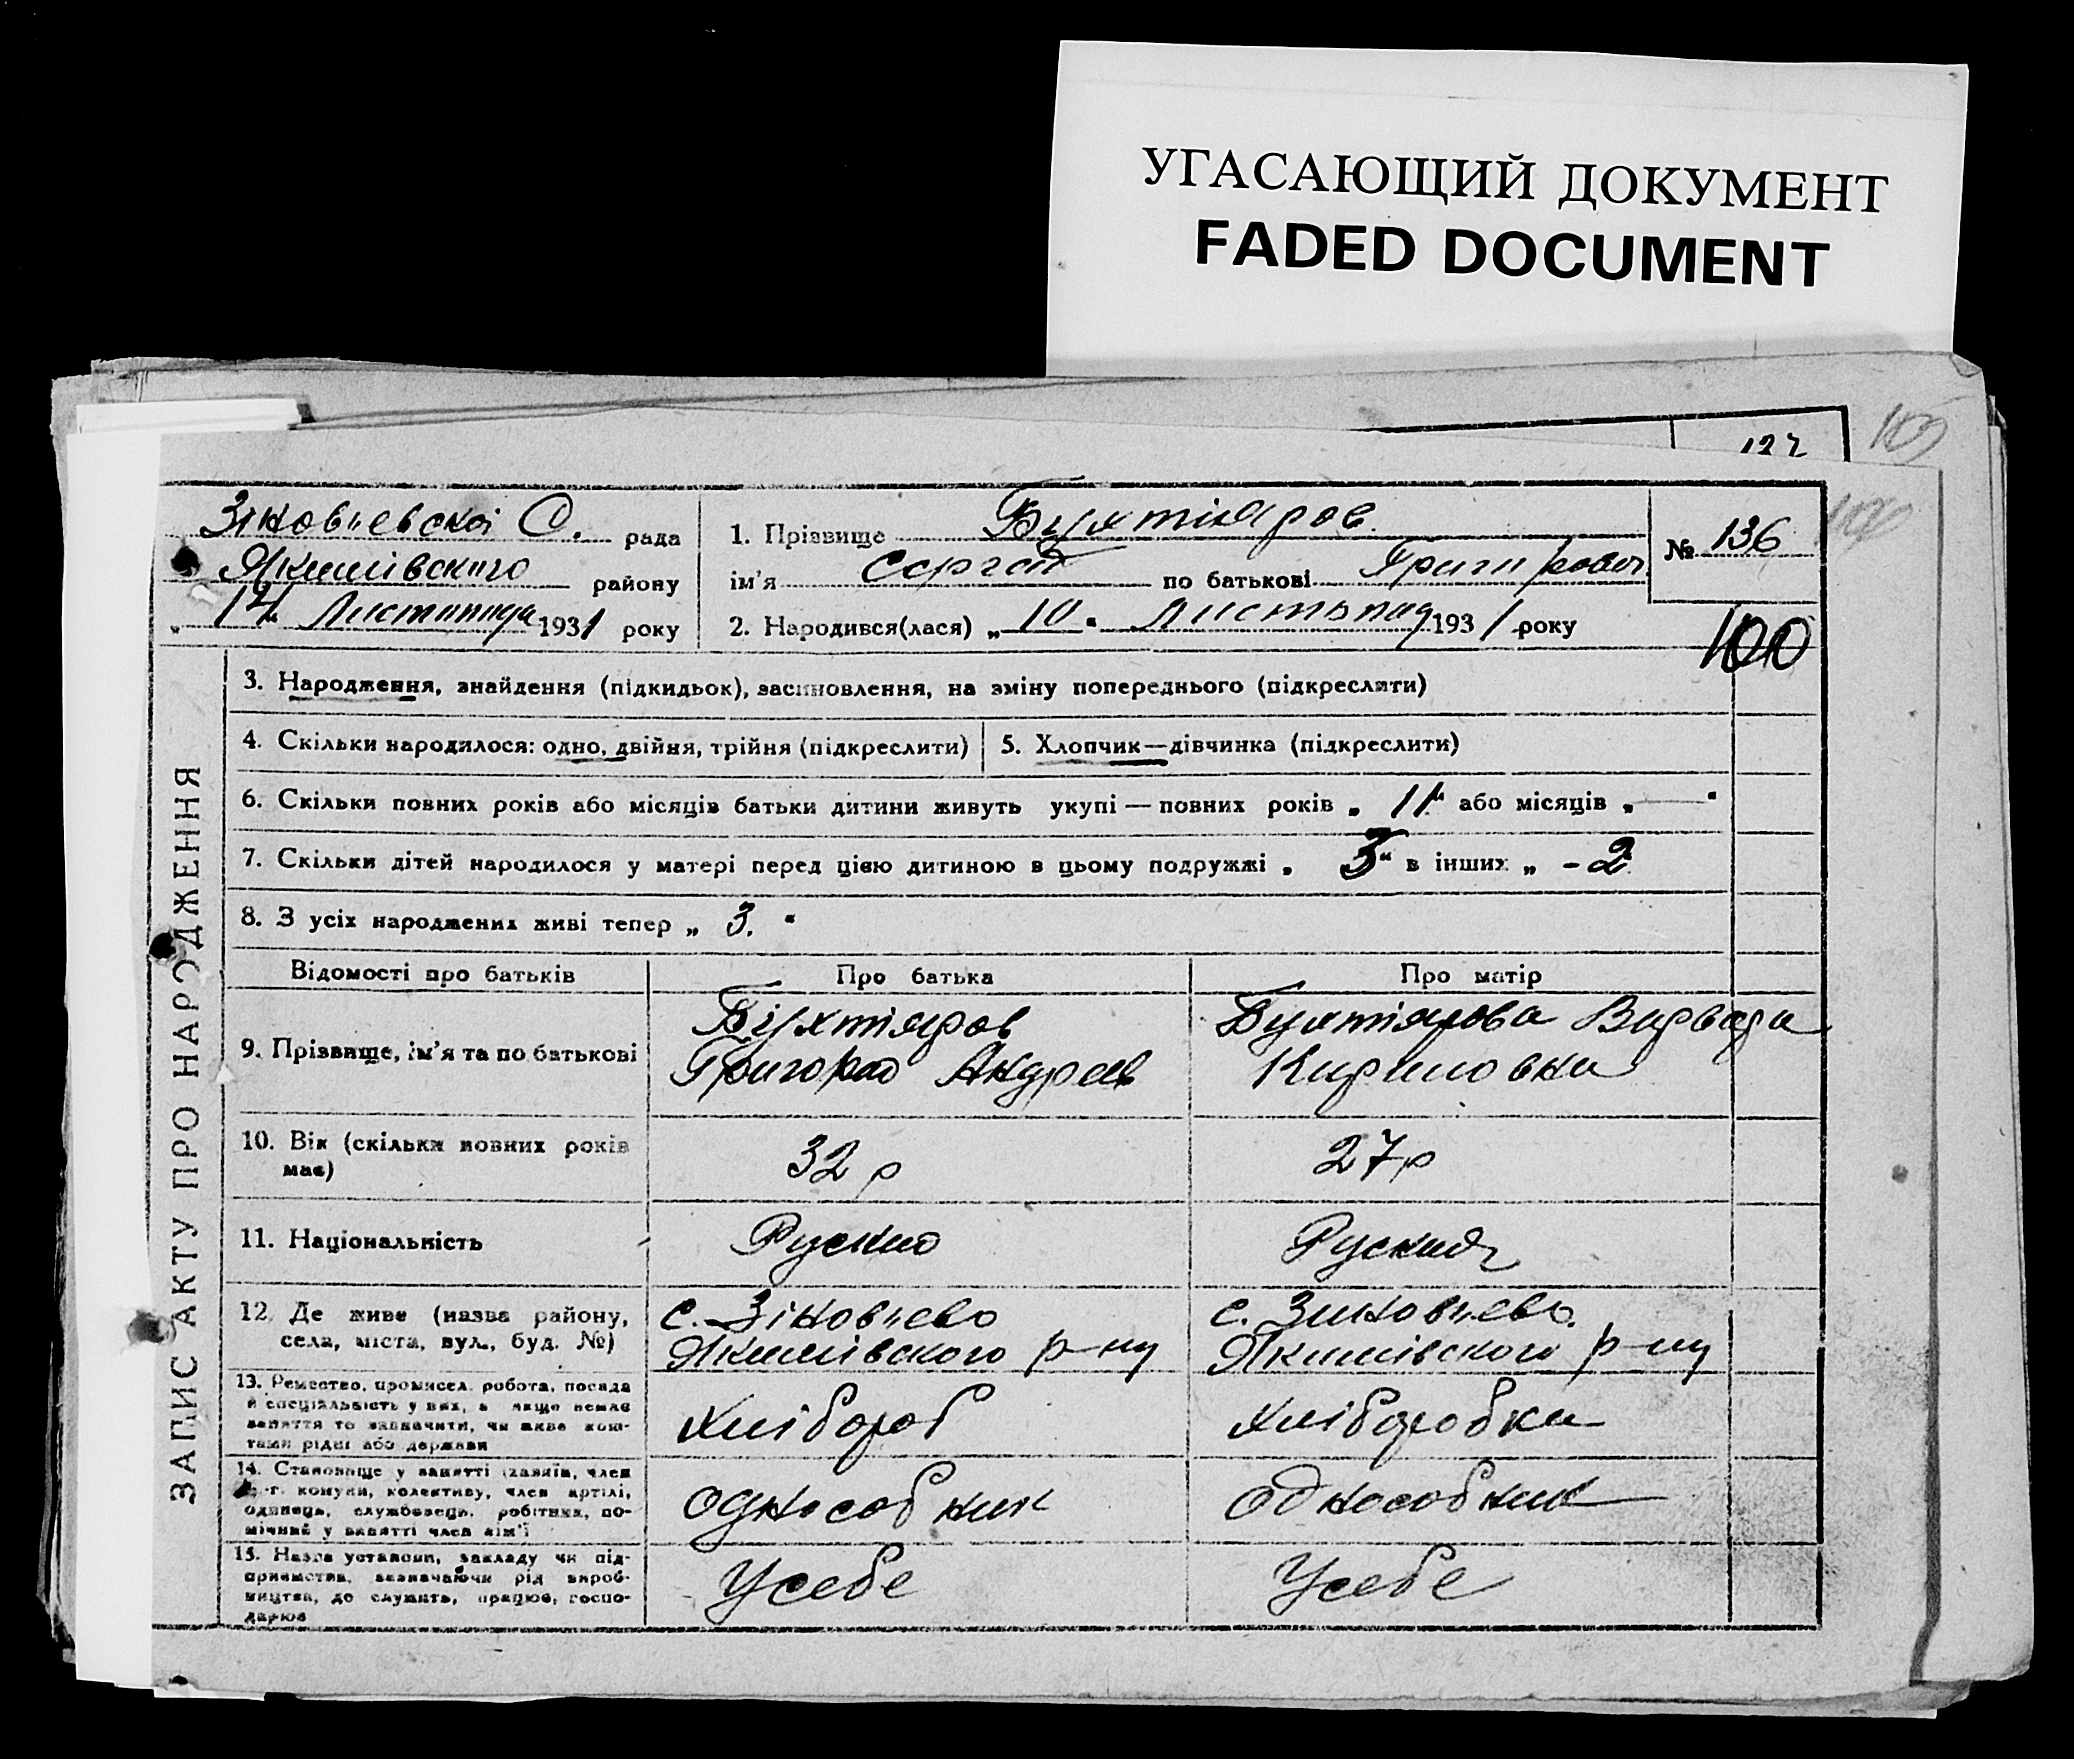 УГАСАЮЩИЙ ДОКУМЕНТ
FADED DOCUMENT
105
122
100
Зіновьевскоі С. рада
Якимівского району
„14" Листопада 1931 року
1. Прізвище Бухтіяров
ім'я Сергей по батькові Григорович
2. Народився(лася) „10" Листьпад 1931 року
№ 136
100
ЗАПИС АКТУ ПРО НАРОДЖЕННЯ
3. Народження, знайдення (підкидьок), засиновлення, на зміну попереднього (підкреслити)
4. Скільки народилося: одно, двійня, трійня (підкреслити)
5. Хлопчик—дівчинка (підкреслити)
6. Скільки повних років або місяців батьки дитини живуть укупі — повних років „ 11 " або місяців „ — "
7. Скільки дітей народилося у матері перед цією дитиною в цьому подружжі „ 3 " в інших „ - 2
8. З усіх народжених живі тепер „ 3. "
Відомості про батьків
Про батька
Про матір
9. Прізвище, ім'я та по батькові
Бухтіяров
Григорій Андреев
Бухтіярова Варвара
Кириловна
10. Вік (скільки повних років
має)
32 р
27 р
11. Національність
Руский
Руския
12. Де живе (назва району,
села, міста, вул., буд. №)
с. Зіновьево
Якимівского р-ну
с. Зиновьево.
Якимівского р-ну
13. Ремество, промисел, робота, посада
й спеціальність у них, а якщо немає
заняття то зазначити, чи живе кош-
тами рідні або держави
Хлібороб
Хліборобка
14. Становище у занятті (хазяїн, член
с.-г. комуни, колективу, член артілі,
одинець, службовець, робітник, по-
мічний у занятті член сім'ї
однособник
однособник
15. Назва установи, закладу чи під-
приємства, зазначаючи рід вироб-
ництва, де служить, працює, госпо-
дарює
У себе
У себе